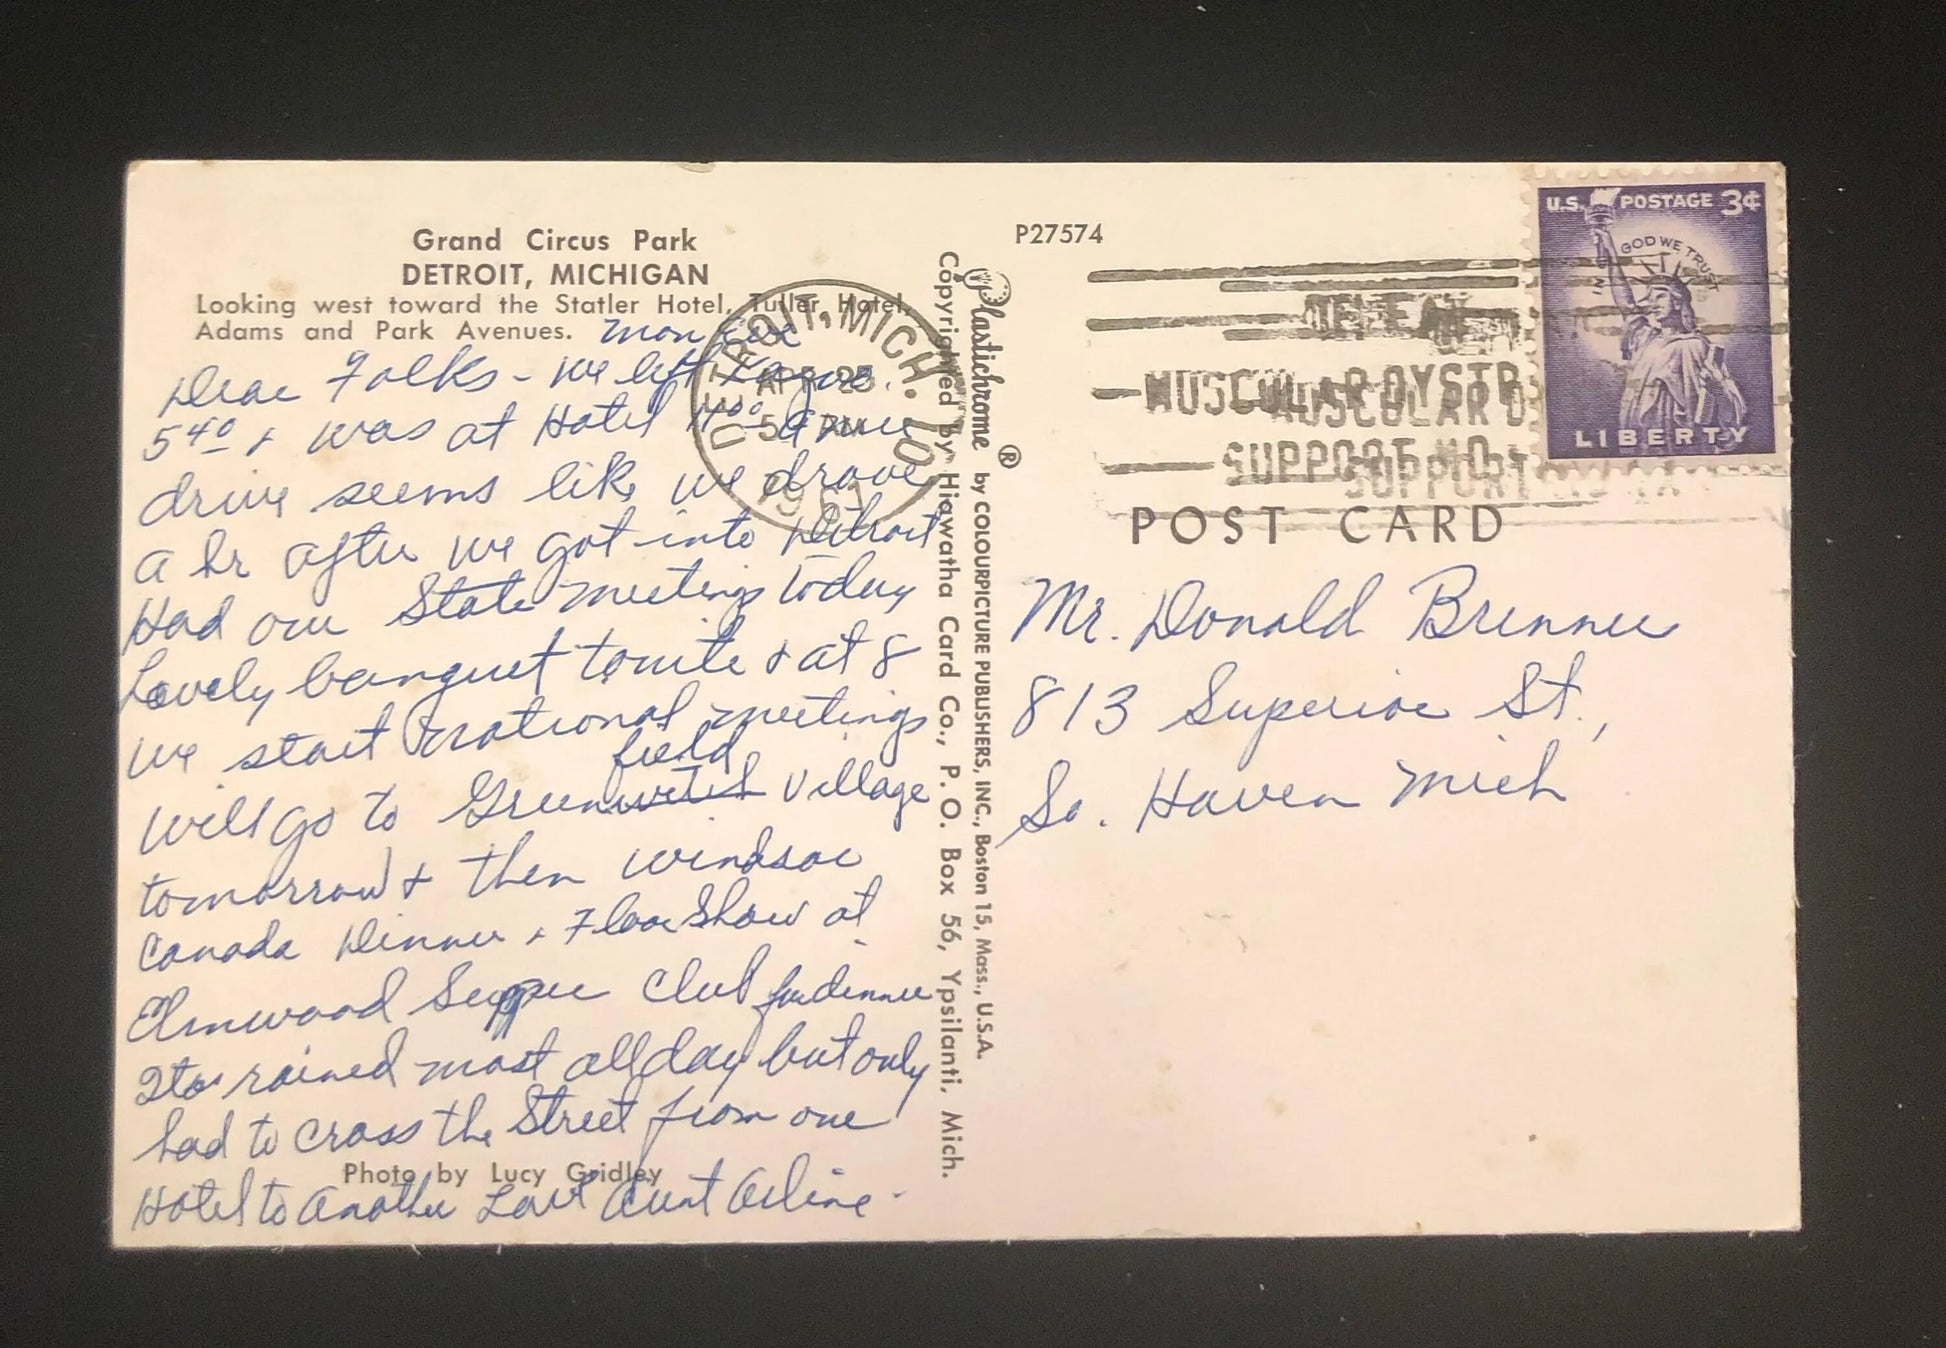 Grand Circus Park
DETROIT, MICHIGAN
Looking west toward the Statler Hotel, Tuller Hotel,
Adams and Park Avenues.
Mon Eve
Dear Folks - we left
5 40 + was at Hotel 11 00 a
drive seems like we drove
a hr after we got into Detroit
Had our State meeting today
Lovely banquet tonite + at 8
we start national meetings
field
will go to Greenwich Village
tomorrow + then Windsor
Canada Dinner + Floor Show at
Elmwood Supper Club for dinner
rained most all day but only
had to cross the Street from one
Photo by Lucy Gridley
Hotel to another Love Aunt Arline.
DETROIT, MICH. 10
APR 25
5 PM
1961
Plastichrome ® by COLOURPICTURE PUBLISHERS, INC., Boston 15, Mass., U.S.A.
Copyrighted by Hiawatha Card Co., P. O. Box 56, Ypsilanti, Mich.
P27574
MUSCULAR DYSTR
SUPPORT
U.S. POSTAGE 3¢
IN GOD WE TRUST
LIBERTY
POST CARD
Mr. Donald Brenner
813 Superior St.,
So. Haven Mich